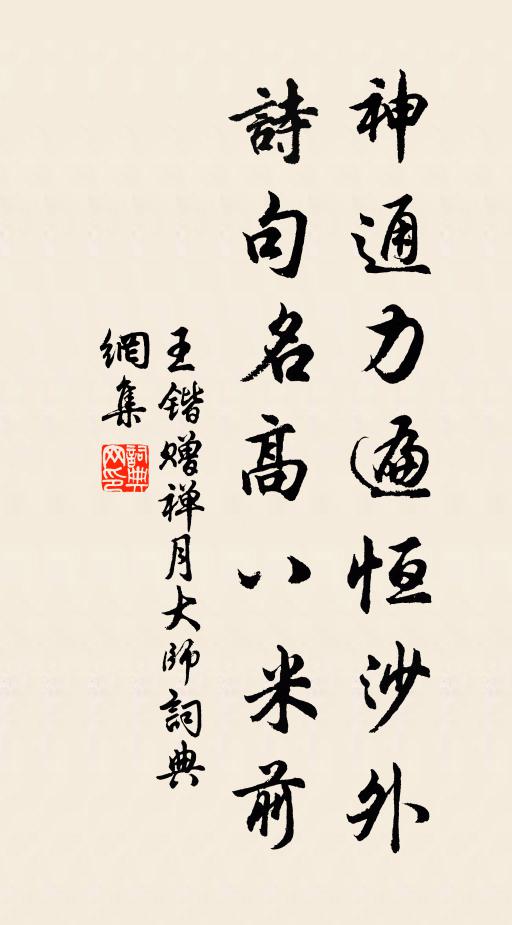 神通力遍恆沙外
詩句名高八米前
王鍇贈禅月大师詞典
網集
詞典網印